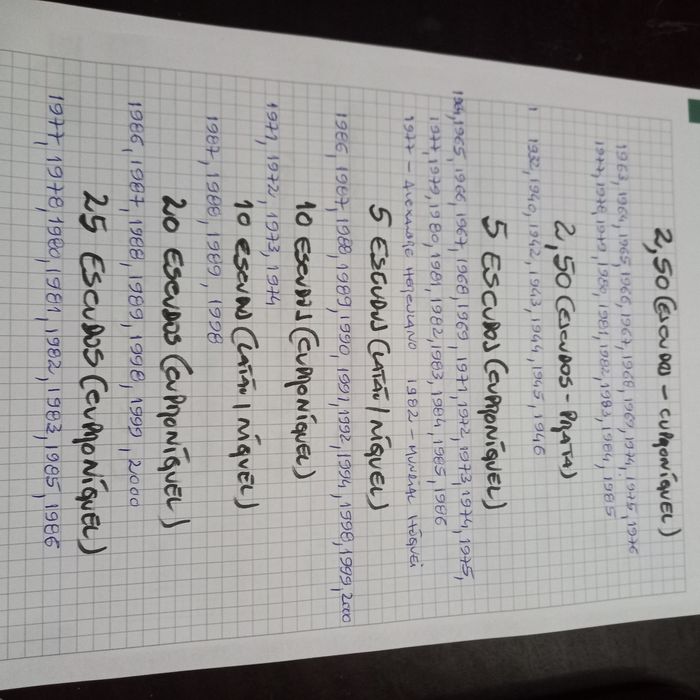 2,50 (ESCUDO - CUPRONÍQUEL)
1963, 1964, 1965, 1966, 1967, 1968, 1969, 1974, 1975, 1976
1977, 1978, 1979, 1980, 1981, 1982, 1983, 1984, 1985
2,50 (ESCUDOS - PRATA)
1 1932, 1940, 1942, 1943, 1944, 1945, 1946
5 ESCUDOS (CUPRONÍQUEL)
1964, 1965, 1966, 1967, 1968, 1969, 1971, 1972, 1973, 1974, 1975,
1977, 1979, 1980, 1981, 1982, 1983, 1984, 1985, 1986
1977 - ALEXANDRE HERCULANO 1982 - MUNDIAL HÓQUEI
5 ESCUDOS (LATÃO / NÍQUEL)
1986, 1987, 1988, 1989, 1990, 1991, 1992, 1994, 1998, 1999, 2000
10 ESCUDOS (CUPRONÍQUEL)
1971, 1972, 1973, 1974
10 ESCUDOS (LATÃO / NÍQUEL)
1987, 1988, 1989, 1998
20 ESCUDOS (CUPRONÍQUEL)
1986, 1987, 1988, 1989, 1998, 1999, 2000
25 ESCUDOS (CUPRONÍQUEL)
1977, 1978, 1980, 1981, 1982, 1983, 1985, 1986